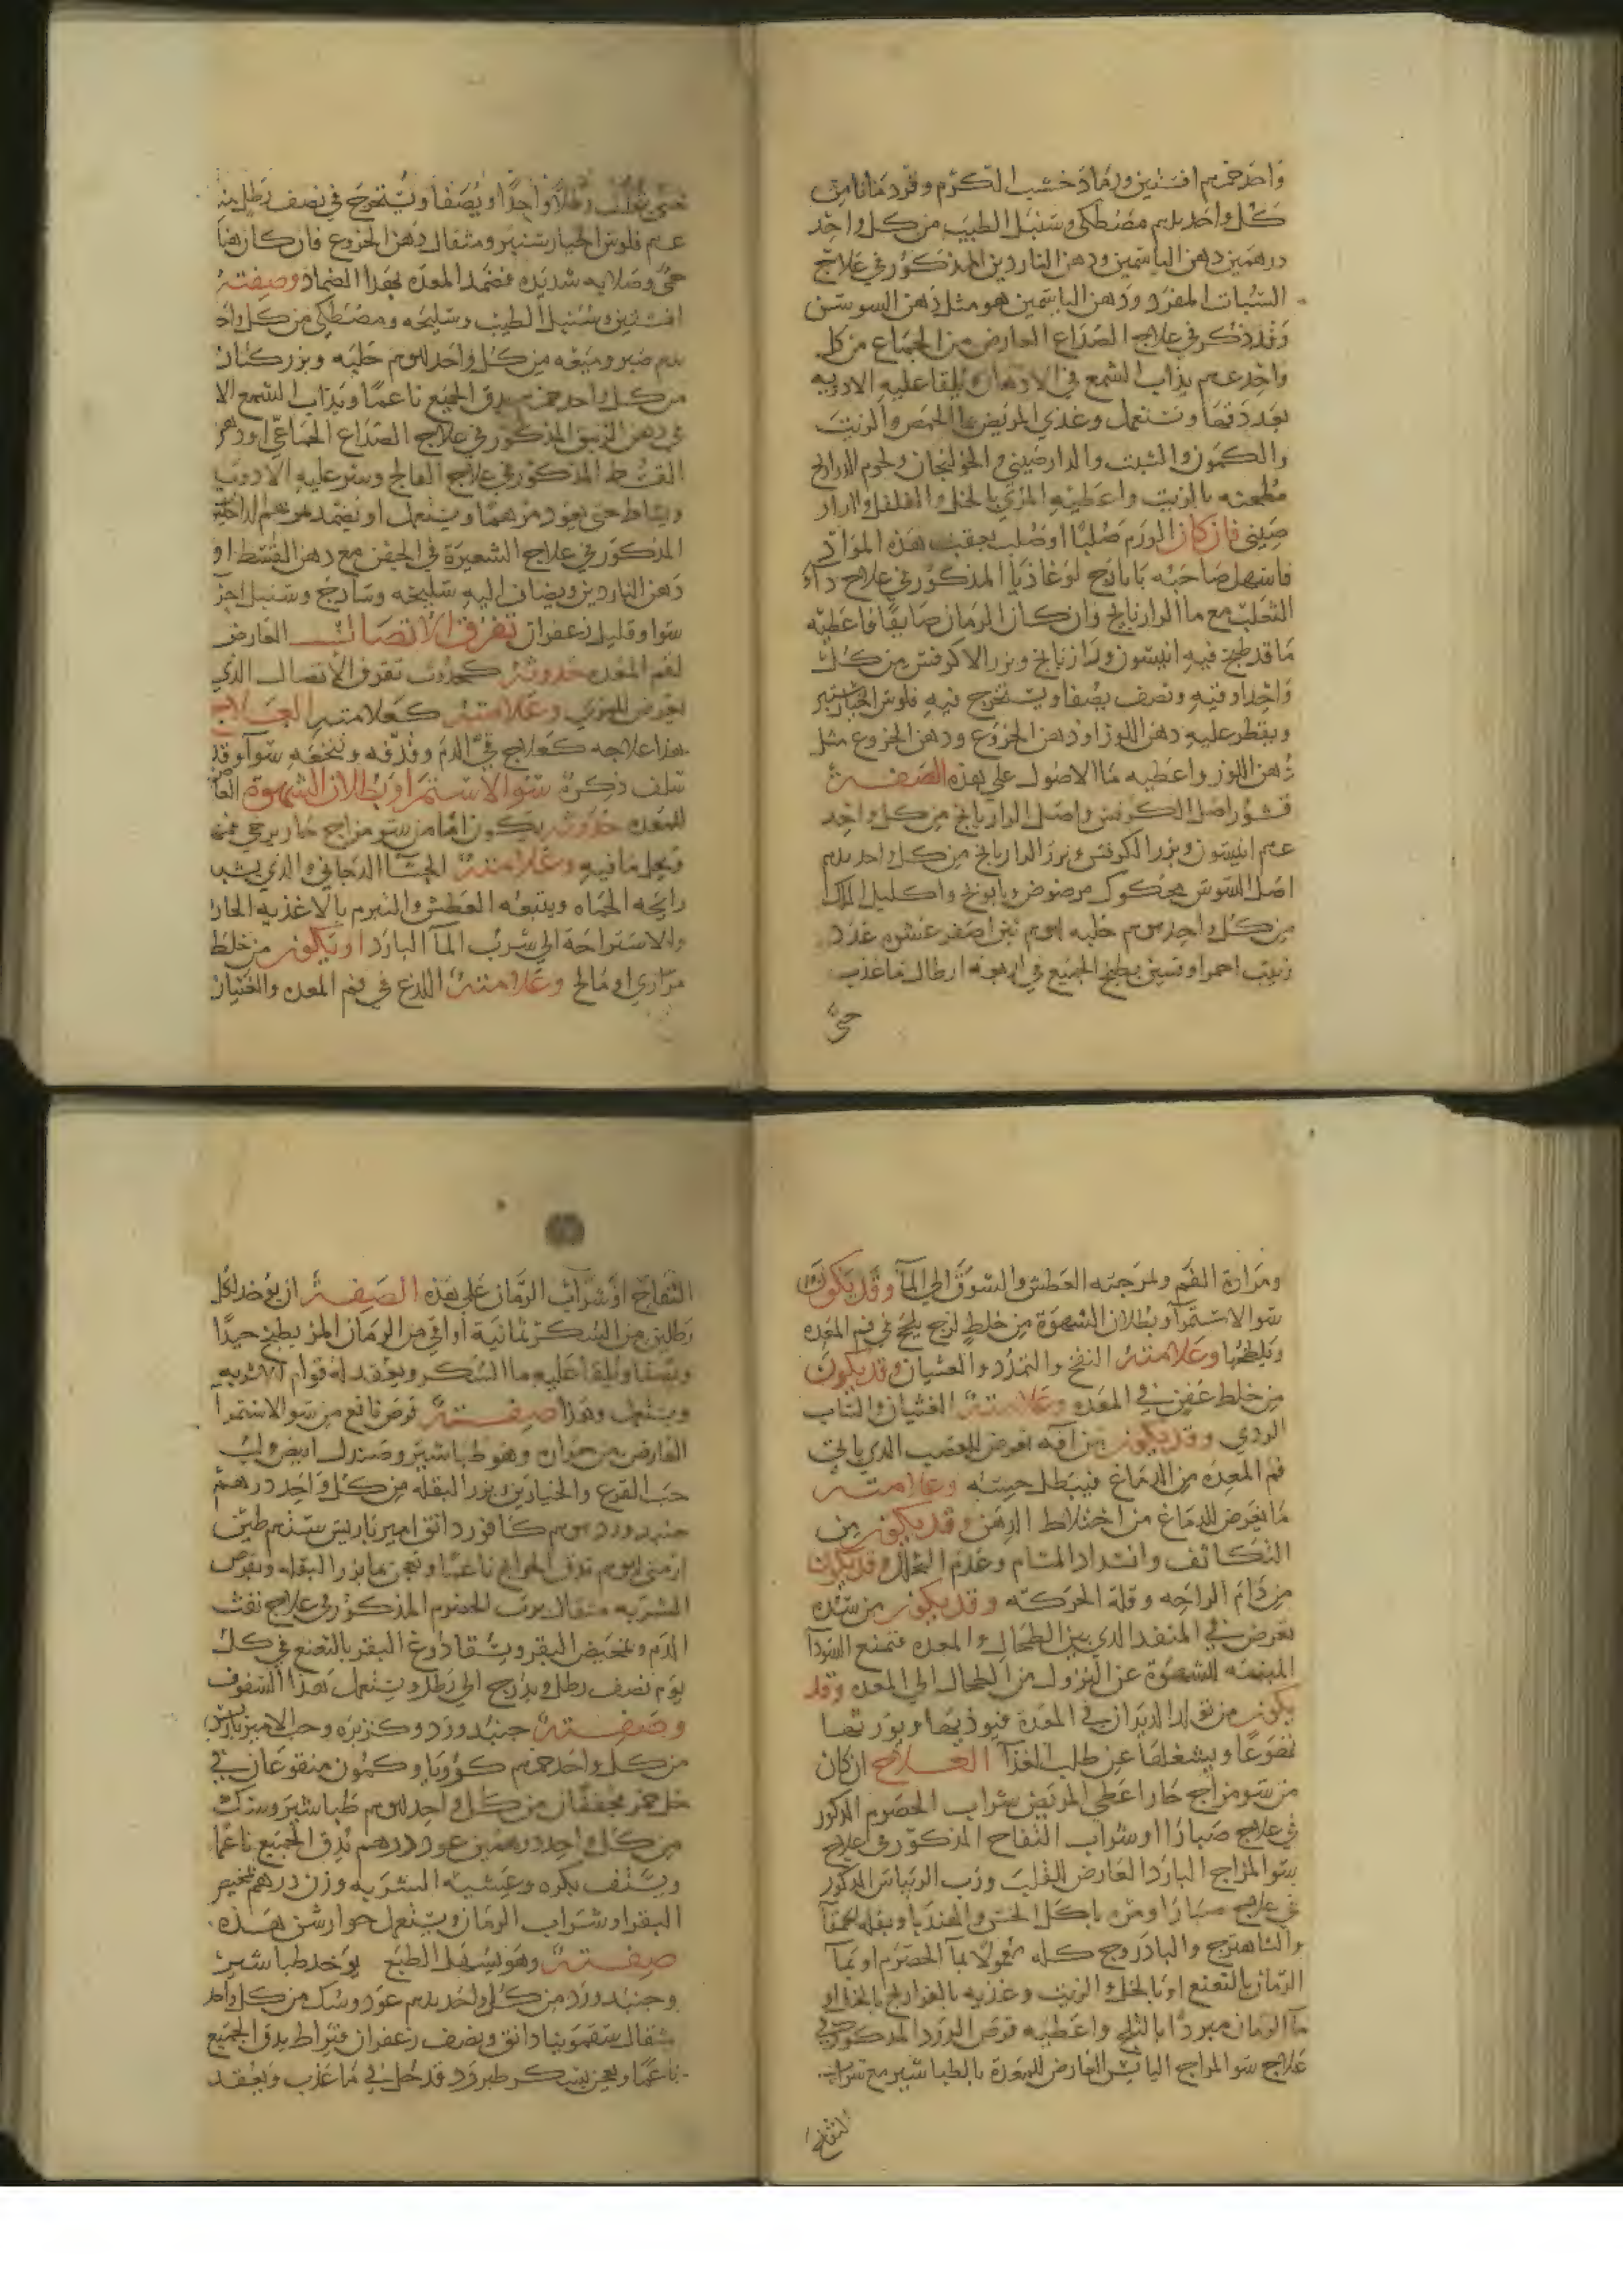 واحد خمسه افسنتين ورماد خشب الكرم وقردمانا من
كل واحد مصطكى وسنبل الطيب من كل واحد
درهمين دهن الياسمين ودهن الناردين المذكور في علاج
السبات المفرد ودهن الياسمين هو مثل دهن السوسن
وقد ذكر في علاج الصداع العارض من الجماع من كل
واحد يذاب الشمع في الادهان ويلقا عليه الادويه
بعد دقها وتستعمل وغذي المريض بما الحمص والزيت
والكمون والشبت والدارصيني والخولنجان ولحوم الدراج
مطجنه بالزيت واعطيه المري بالخل والفلفل والدار
صيني فان كان الورم صلبا او صلب بعقب هذه المواد
فاسهل صاحبه بايارج لوغاذيا المذكور في علاج داء
الثعلب مع ما الرازيانج وان كان الزمان صايفا فاعطيه
ما قد طبخ فيه انيسون ورازيانج وبزر الاكرفس من كل
واحد اوقيه ونصف يصفا ويستخرج فيه فلوس الخيار شنبر
ويقطر عليه دهن اللوز او دهن الخروع ودهن الخروع مثل
دهن اللوز واعطيه ما الاصول على هذه الصفة
قشور اصل الكرفس واصل الرازيانج من كل واحد
انيسون وبزر الكرفس وبزر الرازيانج من كل واحد
اصل السوس محكوك مرضوض وبابونج واكليل الملك
من كل واحد حلبه تين اصفر عشره عدد
زبيب احمر اوقيتين يطبخ الجميع في اربعه ارطال ما عذب
حتى
حتى رطلا واحدا ويصفا ويستخرج في نصف رطل منه
فلوس الخيار شنبر ومثقال دهن الخروع فان كان هنا
حمى وصلابه شديده فضمد المعده بهذا الضماد وصفته
افسنتين وسنبل الطيب وسليخه ومصطكى من كل واحد
صبر وميعه من كل واحد حلبه وبزر كتان
من كل واحد يدق الجميع ناعما ويذاب الشمع الا
في دهن الزنبق المذكور في علاج الصداع الجماعي او دهن
القسط المذكور في علاج الفالج وينثر عليه الادويه
ويساط حتى يعود مرهما ويستعمل او يضمد بمرهم الداخليون
المذكور في علاج الشعيرة في الجفن مع دهن القسط او
دهن الناردين ويضاف اليه سليخه وسادج وسنبل اجزا
سوا وقليل زعفران تفرق الاتصال العارض
لفم المعده حدوثه كحدوث تفرق الاتصال الذي
يعرض للمري وعلامته كعلامته العلاج
هذا علاجه كعلاج قي الدم وقذفه وتنخعه سوا وقد
سلف ذكره سو الاستمرا وبطلان الشهوة العارض
للمعده حدوثه يكون اما من سو مزاج حار يرخي فمها
ويحل ما فيه وعلامته الجشا الدخاني والذي يشبه
رايحه الحماه ويتبعه العطش والتبرم بالاغذيه الحاره
والاستراحة الى شرب الما البارد او يكون من خلط
مراري او مالح وعلامته اللذع في فم المعده والغثيان
ومرارة الفم ولمرجته العطش والشوق الى الما وقد يكون
سو الاستمرا وبطلان الشهوة من خلط لزج يلحج في فم المعده
ويلطخها وعلامته النفخ والتمدد والغثيان وقد يكون
من خلط عفن في المعده وعلامته الغثيان والتاب
الردي وقد يكون من افه تعرض للعصب الذي ياتي
فم المعده من الدماغ فيبطل حسه وعلامته
ما يعرض للدماغ من اختلاط الذهن وقد يكون من
التكاثف وانسداد المسام وعدم التحلل وقد يكون
من دام الراحه وقلة الحركه وقد يكون من سده
تعرض في المنفذ الذي بين الطحال والمعده فتمنع السودا
المنبهه للشهوة عن النزول من الطحال الى المعده وقد
يكون من تولد الديدان في المعدة فيوذيها ويورثها
ويشغلها عن طلب الغذا العلاج ان كان
من سو مزاج حار اعطي المريض شراب الحصرم المذكور
في علاج صبارا او شراب التفاح المذكور في علاج
سو المزاج البارد العارض للقلب ورب الريباس المذكور
في علاج صبارا ومره باكل الخس والهندبا وبقله الحمقا
والشاهترج والبادروج كله معمولا بما الحصرم او بما
الرمان بالنعنع او بالخل والزيت وغذيه بالفراريج بالخل او
ما الرمان مبردا بالثلج واعطيه قرص الورد المذكور في
علاج سو المزاج اليابس العارض للمعدة بالطباشير مع شراب
التفاح
التفاح او شراب الرمان على هذه الصفة ان يوخذ لكل
رطلين من السكر ثمانية اواقي من الرمان المز يطبخ جيدا
ويصفا ويلقا عليه ما السكر ويعقد له قوام الاشربه
ويستعمل وهذا صفة قرص نافع من سو الاستمرا
العارض من حراره وهو طباشير وصندل ابيض ولب
حب القرع والخيارين وبزر البقله من كل واحد درهم
جنبد ورد كافور دانق امبرباريس طين
ارمني تدق الحوايج ناعما وتعجن بما بزر البقله وتقرص
الشربه مثقال برب الحصرم المذكور في علاج نفث
الدم وبمخيض البقر ويسقا دوغ البقر بالنعنع في كل
يوم نصف رطل ويدرج الى رطل ويستعمل هذا السفوف
وصفته جنبد ورد وكزبره وحب الامبرباريس
من كل واحد كرويا وكمون منقوعان في
خل خمر مجففان من كل واحد طباشير وسك
من كل واحد درهمين عود درهم يدق الجميع ناعما
ويستف بكره وعشيه الشربه وزن درهم بمخيض
البقر او شراب الرمان ويستعمل جوارشن هذه
صفته وهو يسهل الطبع يوخذ طباشير
وجنبد ورد من كل واحد عود وسك من كل واحد
مثقال سقمونيا دانق ونصف زعفران قيراط يدق الجميع
ناعما ويعجن بسكر طبرزد قد حل في ما عذب ويعقد